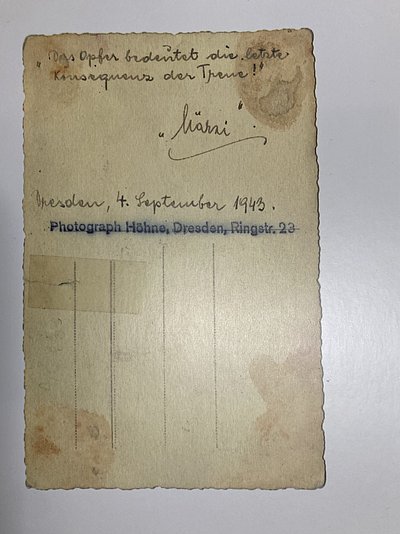 „Das Opfer bedeutet die letzte
Konsequenz der Treue!"
„Märzi".
Dresden, 4. September 1943.
Photograph Höhne, Dresden, Ringstr. 23